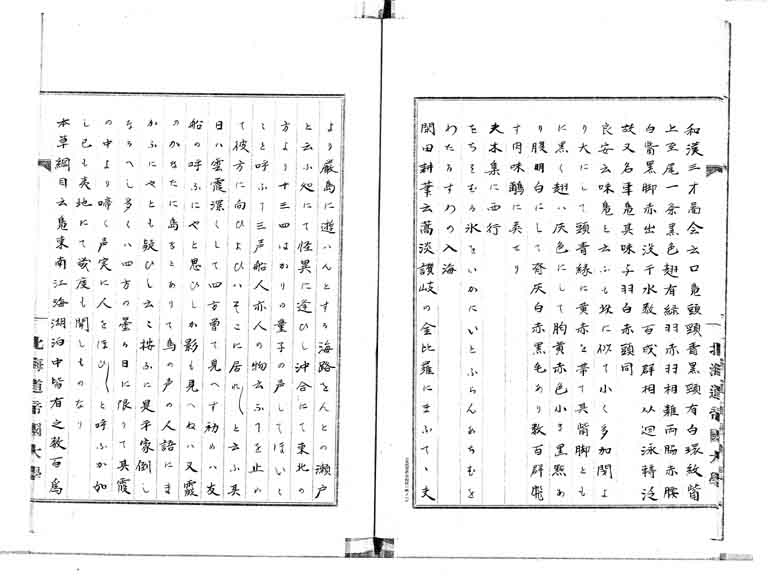 和漢三才圖会云口鳧頭頸青黒頸有白環紋觜
上至尾一条黒色翅有緑羽赤羽相雜両脇赤腰
白觜黒脚赤出没于水数百成群相从廻泳轉泛
故又名車鳧其味与羽白赤頭同
良安云味鳧と云ふも状に似て小く多加閇よ
り大にして頭青緑に黄赤を帯て其觜脚とも
に黒く翅ハ灰色にして胸黄赤色小き黒點あ
り腹明白にして脊灰白赤黒毛あり数百群飛
す肉味鷸に美せり
夫木集に西行
をちをむろ氷をいかにいとふらんあちむを
わたろすわの入海
関田耕筆云蒿淡讃岐の金比羅にまふて、夫
より厳島に遊ハんとすろ海路を人との瀬戸
と云ふ処にて怪異に逢ひし沖合にて東北の
方より十三四はかりの童子の声してほいと
と呼ふ丁三声船人亦人の物云ふ丁を止め
て彼方に向ひよひハそこに居れ〱と云ふ其
日ハ雲霞深くして四方曽て見へす初めハ友
船の呼ふにやと思ひしか影も見へねハ又霞
のかなたに鳥ちとありて鳥の戸の人語にま
かふにやとも疑ひし云々按ふに是平家倒し
なろへし多くハ四方の曇ろ日に限りて其霞
の中より啼く声実に人をほひ〱と呼ふか如
し己も夷地にて幾度も聞しものなり
本草綱目云鳧東南江海湖泊中皆有之数百為
北海道帝國大學
北海道帝國大學